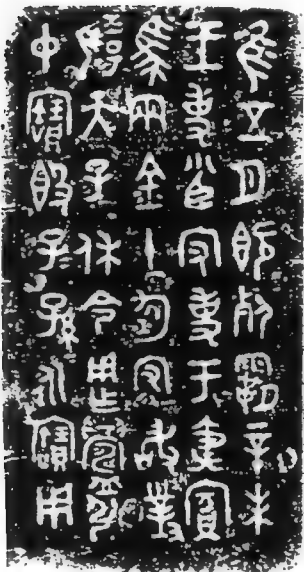 隹五月既死霸辛未
王事小臣守事于夷賓
馬兩金十鈞守敢對
揚天子休令用乍鑄引
中寶簋子子孫孫永寶用